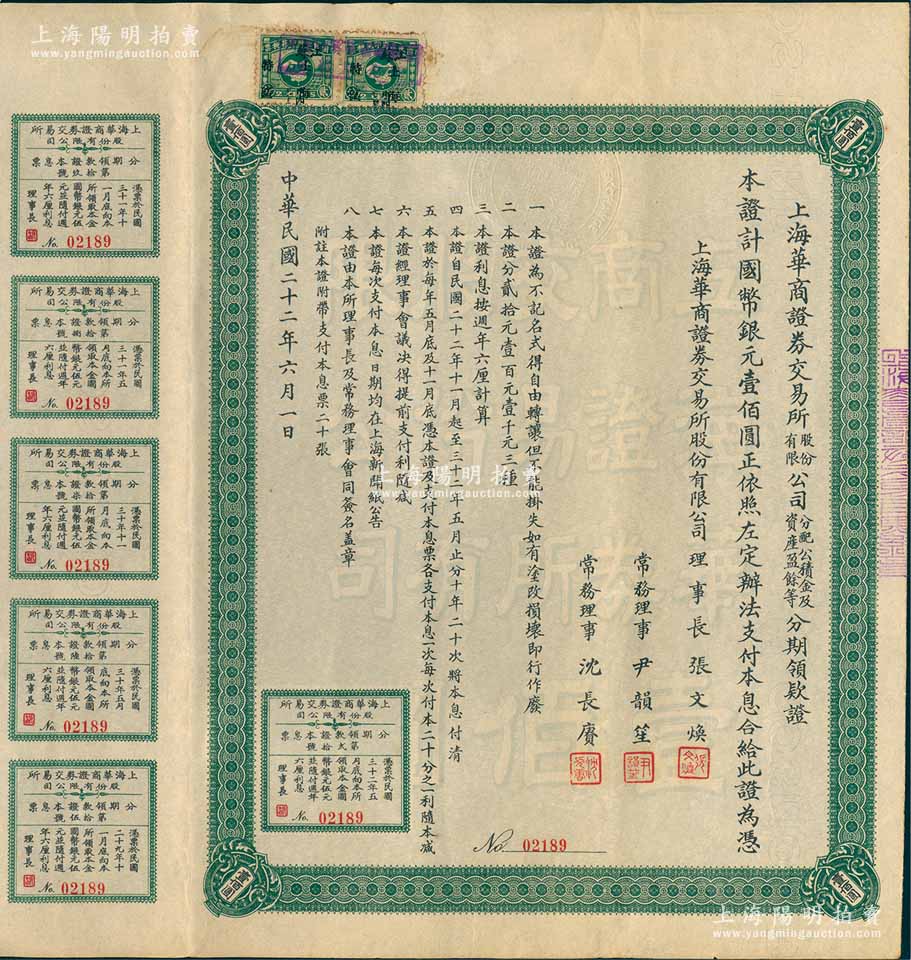 上海陽明拍賣
www.yangmingauction.com
上海華商證券交易所股份有限公司分配公積金及資產盈餘等分期領款證
本證計國幣銀元壹佰圓正依照左定辦法支付本息合給此證為憑
上海華商證券交易所股份有限公司理事長張文煥
常務理事尹韻笙
常務理事沈長賡
一 本證為不記名式得自由轉讓但不能掛失如有塗改損壞即行作廢
二 本證分貳拾元壹百元壹千元三種
三 本證利息按週年六厘計算
四 本證自民國二十二年十一月起至三十二年五月止分十年二十次將本息付清
五 本證於每年五月底及十一月底憑本證及支付本息票各支付本息一次每次付本二十分之一利隨本減
六 本證經理事會議决得提前支付利隨減
七 本證每次支付本息日期均在上海新聞紙公告
八 本證由本所理事長及常務理事會同簽名蓋章
附註本證附帶支付本息票二十張
中華民國二十二年六月一日
No. 02189
所易交券證商華海上
司公限有份股
票息本證款領期分
號貳拾第
憑票於民國
三十二年五
月底向本所
領取本金國
幣銀元伍元
並隨付週年
六厘利息
理事長
No. 02189
所易交券證商華海上
司公限有份股
票息本證款領期分
號玖拾第
憑票於民國
三十一年十
一月底向本
所領取本金
國幣銀元伍
元並隨付週
年六厘利息
理事長
No. 02189
所易交券證商華海上
司公限有份股
票息本證款領期分
號捌拾第
憑票於民國
三十一年五
月底向本所
領取本金國
幣銀元伍元
並隨付週年
六厘利息
理事長
No. 02189
所易交券證商華海上
司公限有份股
票息本證款領期分
號柒拾第
憑票於民國
三十年十一
月底向本所
領取本金國
幣銀元伍元
並隨付週
年六厘利息
理事長
No. 02189
所易交券證商華海上
司公限有份股
票息本證款領期分
號陸拾第
憑票於民國
三十年五月
底向本所
領取本金國
幣銀元伍元
並隨付週年
六厘利息
理事長
No. 02189
所易交券證商華海上
司公限有份股
票息本證款領期分
憑票於民國
二十九年十
一月底向本
所領取本金
國幣銀元伍
元並隨付週
年六厘利息
理事長
No. 02189
上海陽明拍賣
www.yangmingauction.com
上海陽明拍賣
www.yangmingauction.com